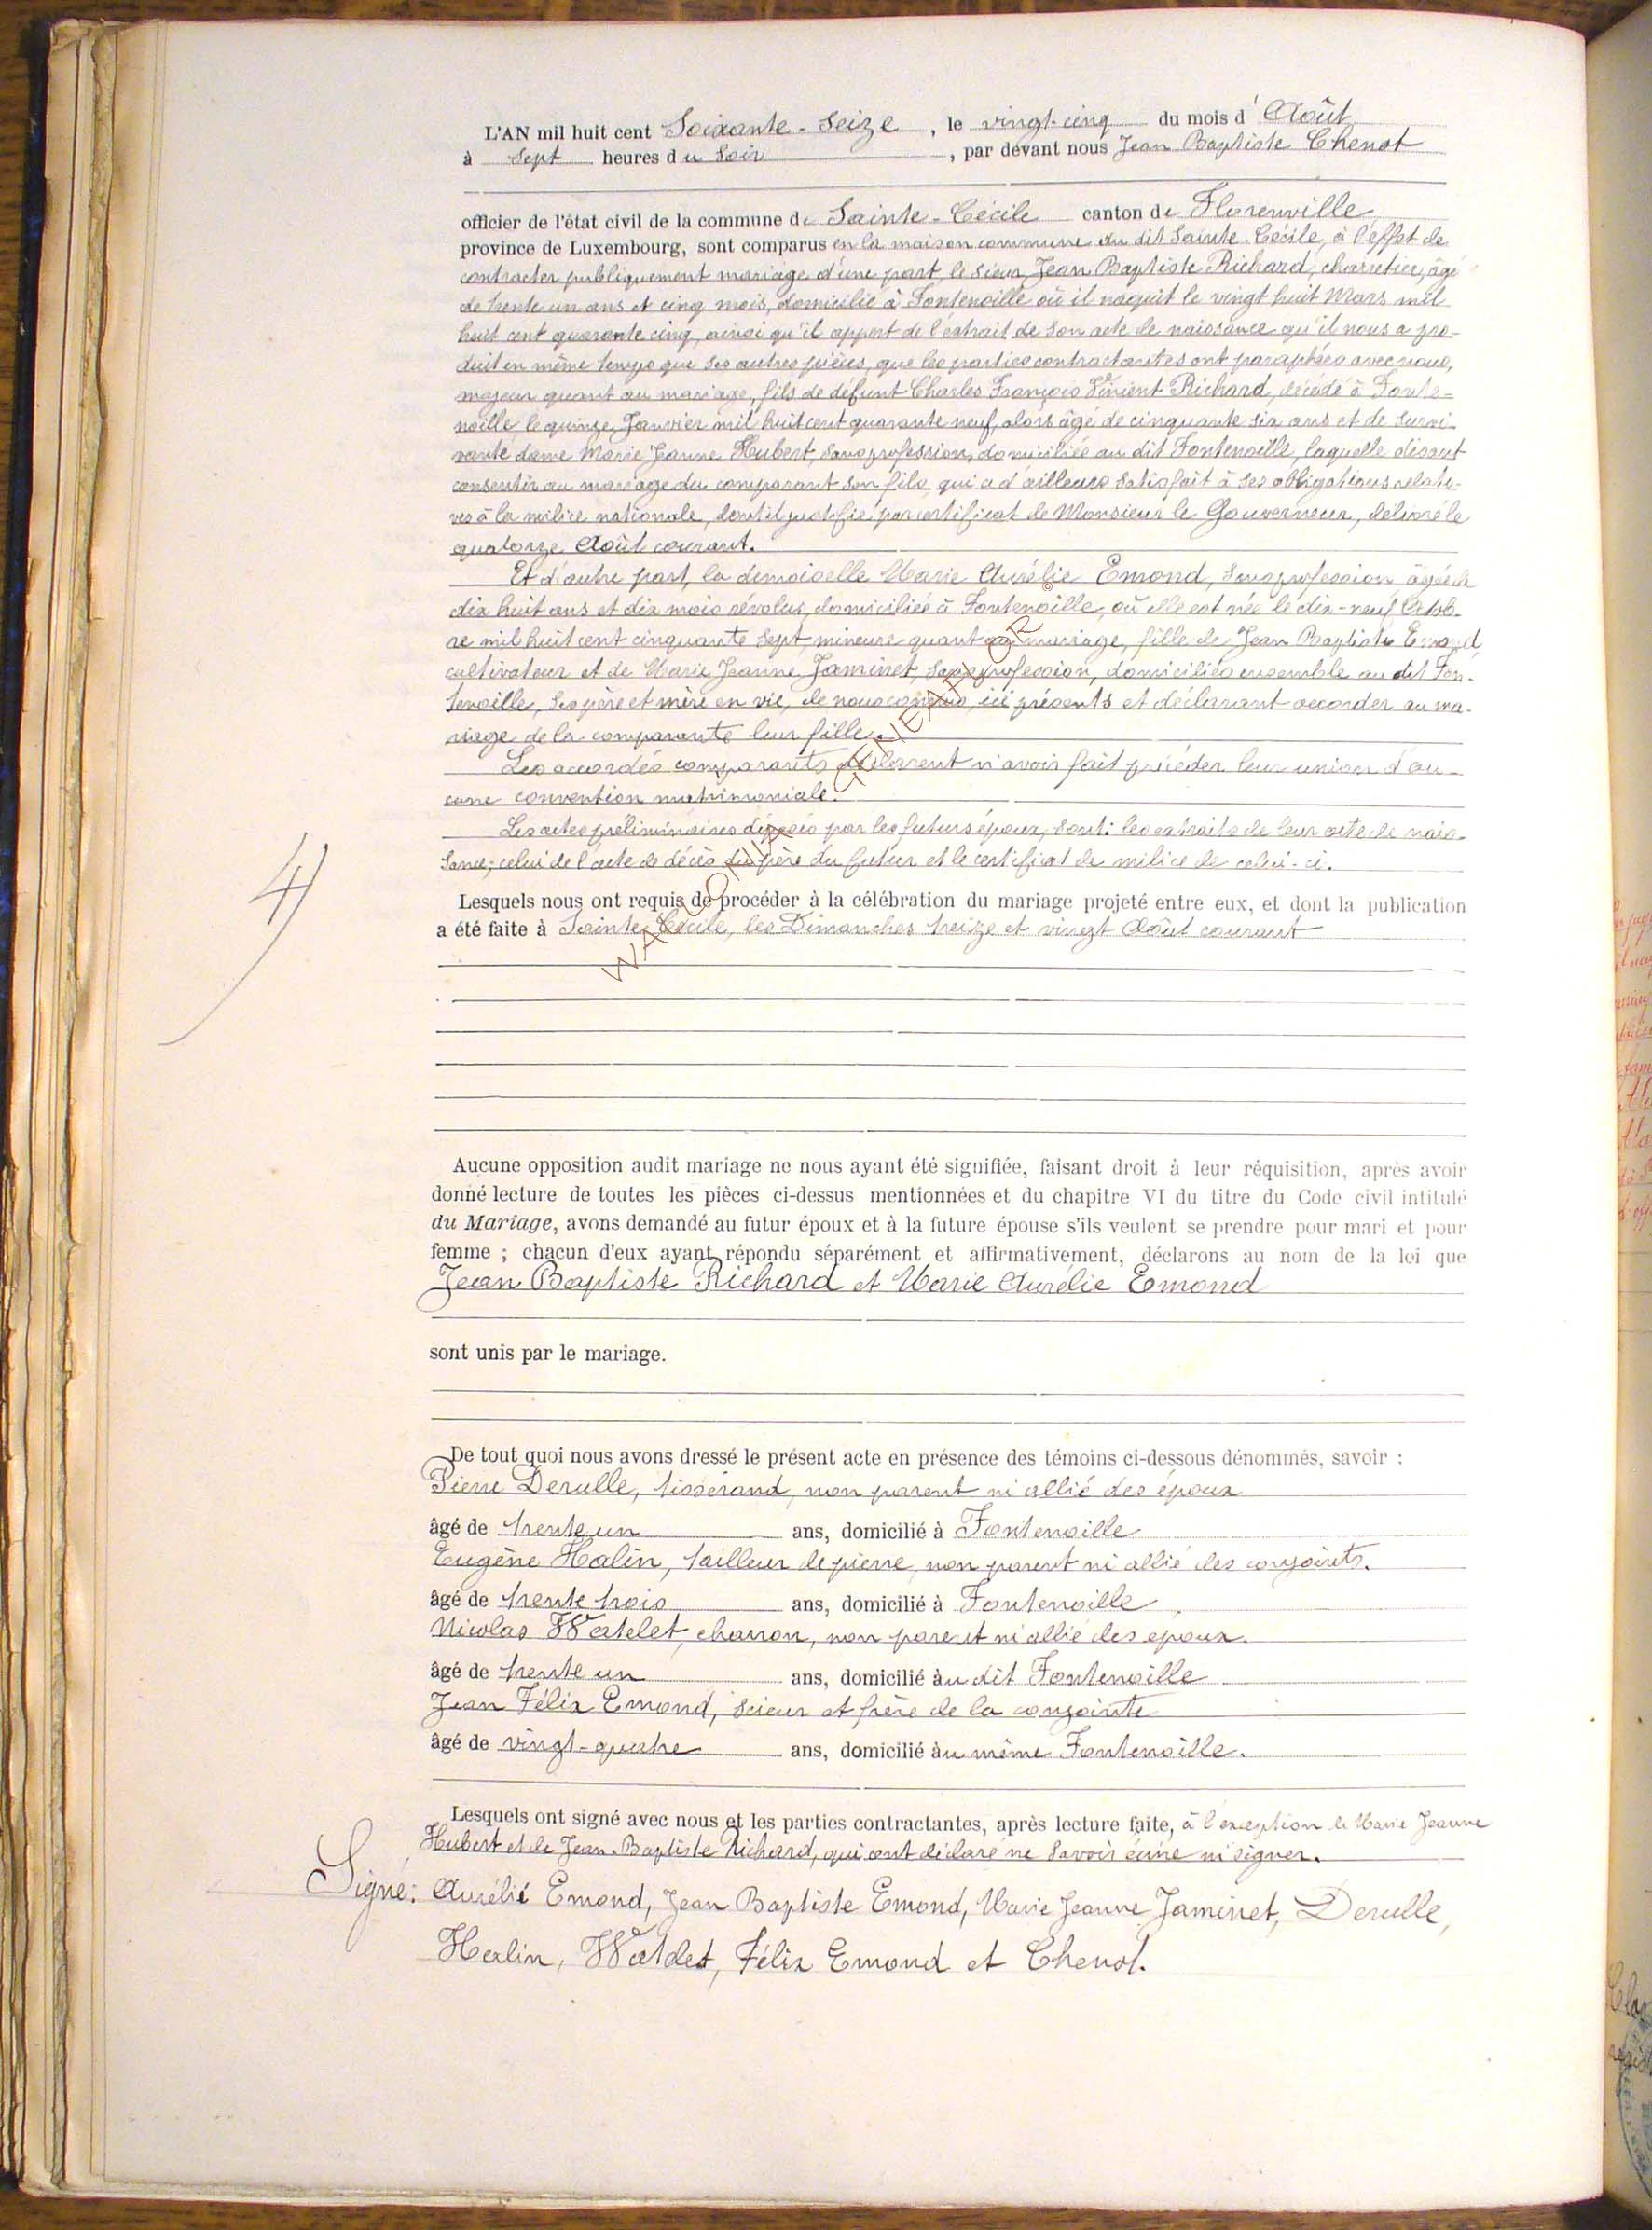 L'AN mil huit cent Soixante-Seize, le vingt-cinq du mois d'Août
à Sept heures du Soir, par devant nous Jean Baptiste Chenot
officier de l'état civil de la commune de Sainte-Cécile canton de Florenville
province de Luxembourg, sont comparus en la maison commune du dit Sainte-Cécile, à l'effet de
contracter publiquement mariage d'une part, le Sieur Jean Baptiste Richard, charretier, âgé
de trente un ans et cinq mois, domicilié à Fontenoille où il naquit le vingt huit Mars mil
huit cent quarante cinq, ainsi qu'il appert de l'extrait de son acte de naissance qu'il nous a pro-
duit en même temps que ses autres pièces, que les parties contractantes ont paraphées avec nous,
majeur quant au mariage, fils de défunt Charles François Vincent Richard, décédé à Fonte-
noille, le quinze Janvier mil huit cent quarante neuf, alors âgé de cinquante six ans et de survi-
vante dame Marie Jeanne Hubert, sans profession, domiciliée au dit Fontenoille, laquelle disant
consentir au mariage du comparant son fils, qui a d'ailleurs Satisfait à ses obligations relati-
ves à la milice nationale, dont il justifie par certificat de Monsieur le Gouverneur, délivré le
quatorze Août courant.
Et d'autre part, la demoiselle Marie Aurélie Emond, Sans profession âgée de
dix huit ans et dix mois révolus, domiciliée à Fontenoille, où elle est née le dix-neuf Octob-
re mil huit cent cinquante Sept, mineure quant au mariage, fille de Jean Baptiste Emond
cultivateur et de Marie Jeanne Jaminet, Sans profession, domiciliés ensemble au dit Fon-
tenoille, Ses père et mère en vie, de nous connus, ici présents et déclarant accorder au ma-
riage de la comparante leur fille.
Les accordés comparants déclarent n'avoir fait précéder leur union d'au-
cune convention matrimoniale.
Les actes préliminaires déposés par les futurs époux, sont: les extraits de leur acte de nais-
sance; celui de l'acte de décès du père du futur et le certificat de milice de celui-ci.
4
Lesquels nous ont requis de procéder à la célébration du mariage projeté entre eux, et dont la publication
a été faite à Sainte-Cécile, les Dimanches treize et vingt Août courant
Aucune opposition audit mariage ne nous ayant été signifiée, faisant droit à leur réquisition, après avoir
donné lecture de toutes les pièces ci-dessus mentionnées et du chapitre VI du titre du Code civil intitulé
du Mariage, avons demandé au futur époux et à la future épouse s'ils veulent se prendre pour mari et pour
femme ; chacun d'eux ayant répondu séparément et affirmativement, déclarons au nom de la loi que
Jean Baptiste Richard et Marie Aurélie Emond
sont unis par le mariage.
De tout quoi nous avons dressé le présent acte en présence des témoins ci-dessous dénommés, savoir :
Pierre Derulle, tisserand, non parent ni allié des époux
âgé de trente un ans, domicilié à Fontenoille
Eugène Halin, tailleur de pierre, non parent ni allié des conjoints.
âgé de trente trois ans, domicilié à Fontenoille,
Nicolas Watelet, charron, non parent ni allié des époux.
âgé de trente un ans, domicilié àu dit Fontenoille
Jean Félix Emond, scieur et frère de la conjointe
âgé de vingt-quatre ans, domicilié àu même Fontenoille.
Lesquels ont signé avec nous et les parties contractantes, après lecture faite, à l'exception de Marie Jeanne
Hubert et de Jean Baptiste Richard, qui ont déclaré ne Savoir écrire ni signer.
Signé: Aurélie Emond, Jean Baptiste Emond, Marie Jeanne Jaminet, Derulle,
Halin, Watelet, Félix Emond et Chenot.